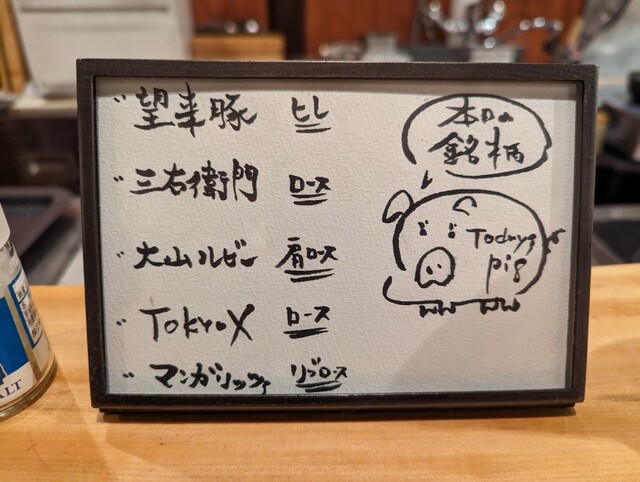 望来豚 ヒレ
三右衛門 ロース
大山ルビー 肩ロース
TOKYO X ロース
マンガリッツァ リブロース
本日の
銘柄
Today's
pig
ALT